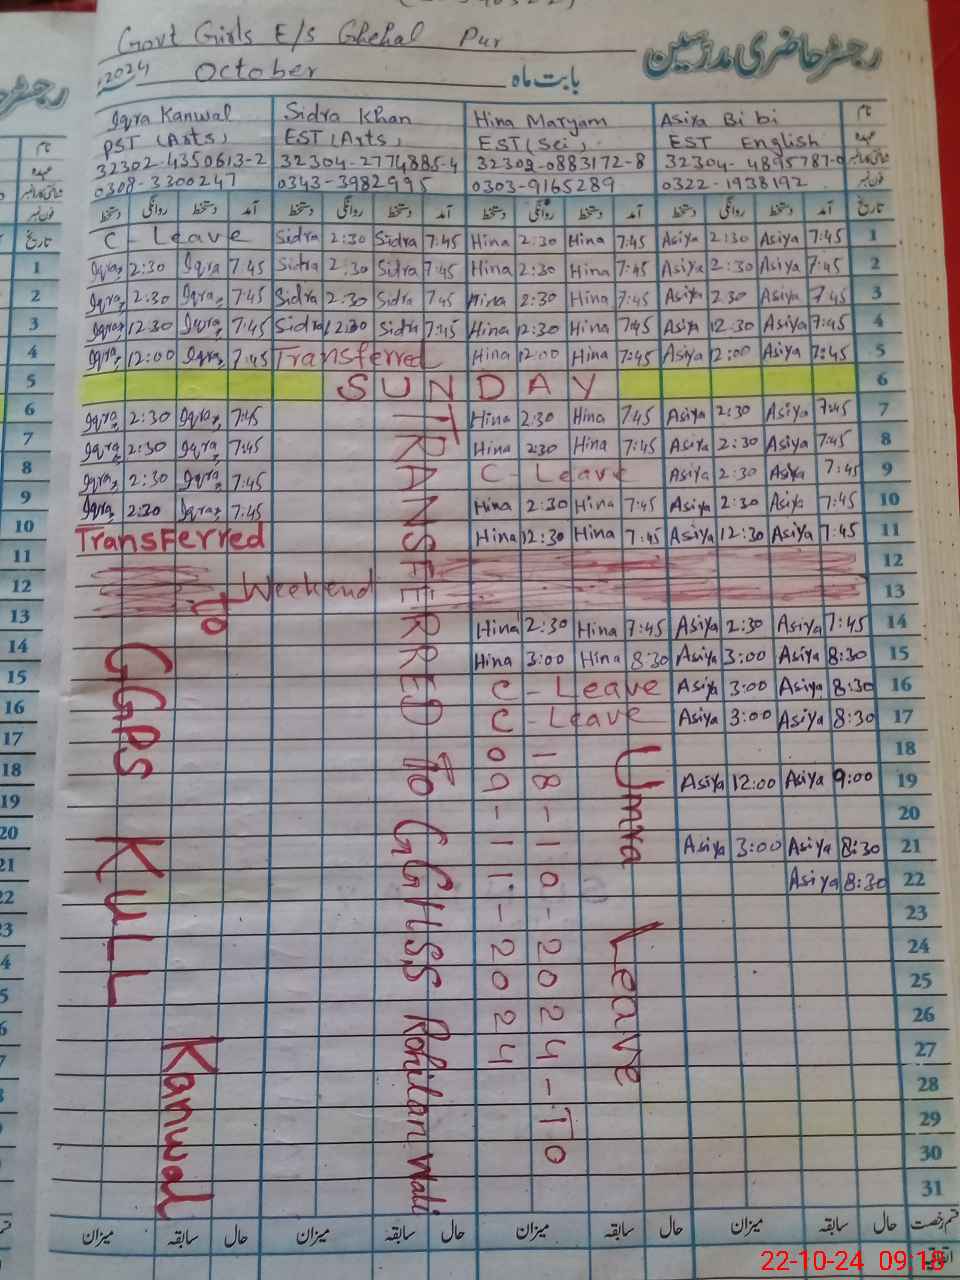 Govt Girls E/s Ghehal Pur
رجسٹر حاضری مدرسین
2024 October بابت ماہ
Iqra Kanwal Sidra Khan Hina Maryam Asiya Bibi نام
PST (Arts) EST (Arts) EST (Sci) EST English عہدہ
32302-4350613-2 32304-2774885-4 32302-0883172-8 32304-4895787-0
0308-3300247 0343-3982995 0303-9165289 0322-1938192 فون نمبر
دستخط روانگی دستخط آمد دستخط روانگی دستخط آمد دستخط روانگی دستخط آمد دستخط روانگی دستخط آمد تاریخ
C - Leave Sidra 2:30 Sidra 7:45 Hina 2:30 Hina 7:45 Asiya 2:30 Asiya 7:45 1
Iqra 2:30 Iqra 7:45 Sidra 2:30 Sidra 7:45 Hina 2:30 Hina 7:45 Asiya 2:30 Asiya 7:45 2
Iqra 2:30 Iqra 7:45 Sidra 2:30 Sidra 7:45 Hina 2:30 Hina 7:45 Asiya 2:30 Asiya 7:45 3
Iqra 12:30 Iqra 7:45 Sidra 12:30 Sidra 7:45 Hina 12:30 Hina 7:45 Asiya 12:30 Asiya 7:45 4
Iqra 12:00 Iqra 7:45 Transferred Hina 12:00 Hina 7:45 Asiya 12:00 Asiya 7:45 5
SUNDAY 6
Iqra 2:30 Iqra 7:45 Hina 2:30 Hina 7:45 Asiya 2:30 Asiya 7:45 7
Iqra 2:30 Iqra 7:45 Hina 2:30 Hina 7:45 Asiya 2:30 Asiya 7:45 8
Iqra 2:30 Iqra 7:45 C - Leave Asiya 2:30 Asiya 7:45 9
Iqra 2:30 Iqra 7:45 Hina 2:30 Hina 7:45 Asiya 2:30 Asiya 7:45 10
Transferred Hina 12:30 Hina 7:45 Asiya 12:30 Asiya 7:45 11
12
Weekend 13
Hina 2:30 Hina 7:45 Asiya 2:30 Asiya 7:45 14
Hina 3:00 Hina 8:30 Asiya 3:00 Asiya 8:30 15
C - Leave Asiya 3:00 Asiya 8:30 16
C - Leave Asiya 3:00 Asiya 8:30 17
18
Asiya 12:00 Asiya 9:00 19
20
Asiya 3:00 Asiya 8:30 21
Asiya 8:30 22
23
24
25
26
27
28
29
30
31
To GGPS KULL Kanwal
TRANSFERRED To GGHSS Rohilan wali
Umra Leave
18-10-2024-To
09-11-2024
میزان سابقہ حال میزان سابقہ حال میزان سابقہ حال میزان سابقہ حال قسم رخصت
اتفاقی
1
2
3
4
5
6
7
8
9
10
11
12
13
14
15
16
17
18
19
20
21
22
23
22-10-24 09:18